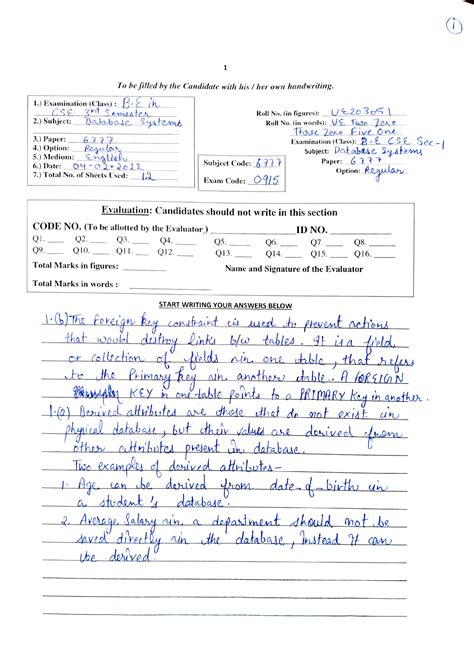 1
1
To be filled by the Candidate with his / her own handwriting.
1.) Examination (Class) : B.E in
CSE 3rd Semester
2.) Subject: Database Systems
3.) Paper: 6777
4.) Option: Regular
5.) Medium: English
6.) Date: 04-02-2022
7.) Total No. of Sheets Used: 12
Subject Code: 6777
Exam Code: 0915
Roll No. (in figures): UE203051
Roll No. (in words): UE Two Zero
Three Zero Five One
Examination (Class): B.E CSE Sec-1
Subject: Database Systems
Paper: 6777
Option: Regular
Evaluation: Candidates should not write in this section
CODE NO. (To be allotted by the Evaluator ) ID NO.
Q1. Q2. Q3. Q4. Q5. Q6. Q7. Q8.
Q9. Q10. Q11. Q12. Q13. Q14. Q15. Q16.
Total Marks in figures: Name and Signature of the Evaluator
Total Marks in words :
START WRITING YOUR ANSWERS BELOW
1.(b) The Foreign Key constraint is used to prevent actions
that would destroy links b/w tables. It is a field
or collection of fields in one table, that refers
to the Primary key in another table. A FOREIGN
KEY in one table points to a PRIMARY Key in another.
1.(a) Derived attributes are those that do not exist in
physical database, but their values are derived from
other attributes present in database.
Two examples of derived attributes-
1. Age can be derived from date-of-birth in
a student's database.
2. Average-Salary in a department should not be
saved directly in the database, instead it can
be derived.